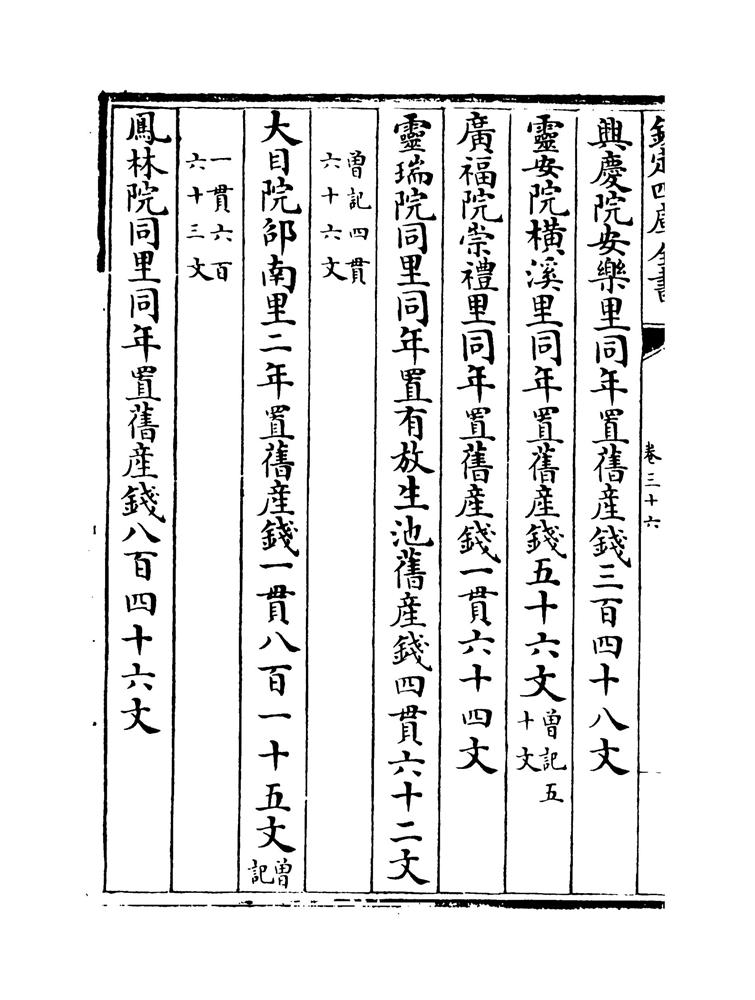 欽定四庫全書
卷三十六
興慶院安樂里同年置舊產錢三百四十八文
靈安院橫溪里同年置舊產錢五十六文曾記五十文
廣福院崇禮里同年置舊產錢一貫六十四文
靈瑞院同里同年置有放生池舊產錢四貫六十二文
曾記四貫六十六文
大目院郃南里二年置舊產錢一貫八百一十五文曾記
一貫六百六十三文
鳳林院同里同年置舊產錢八百四十六文